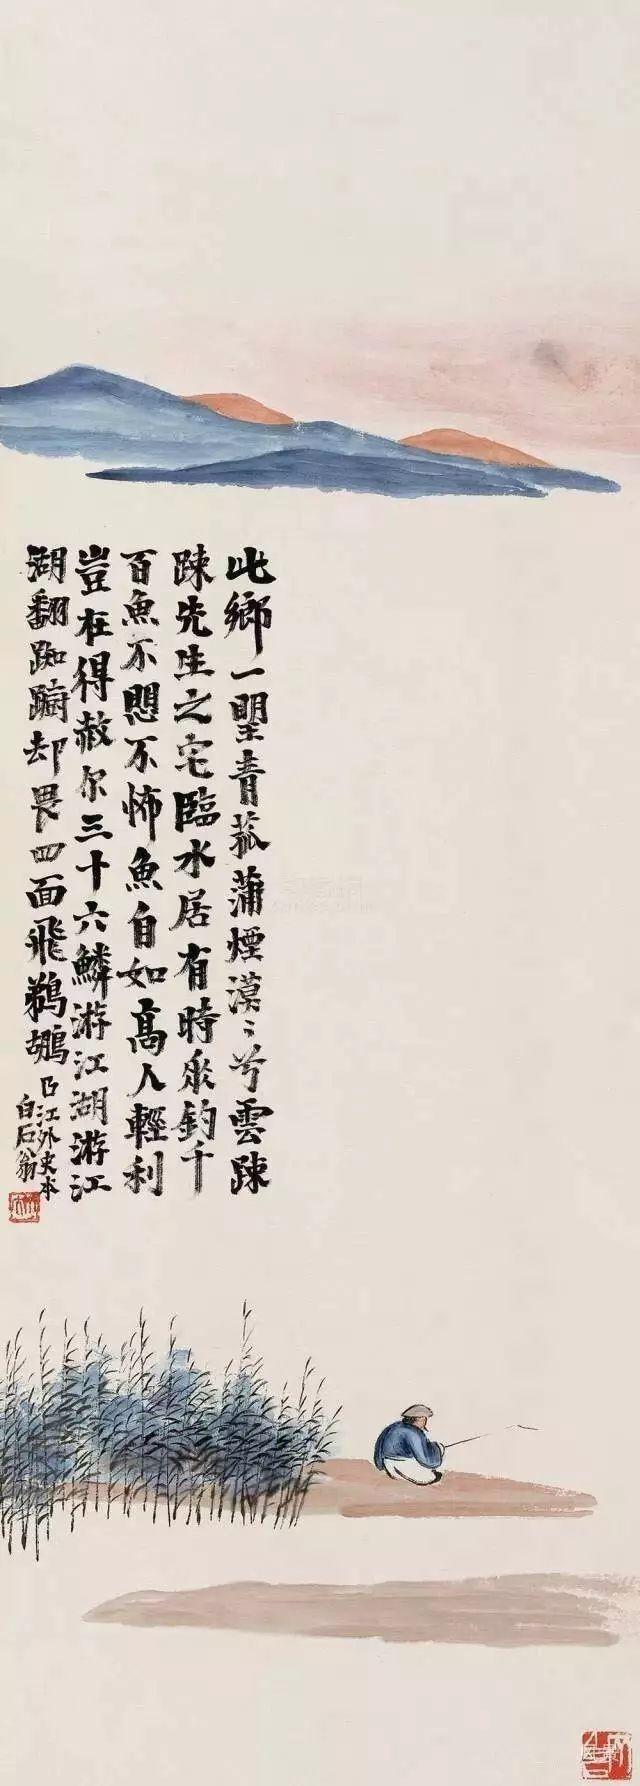 此鄉一望青菰蒲煙漠〻兮雲踈
踈先生之宅臨水居有時垂釣千
百魚不愳不怖魚自如高人輕利
豈在得赦尔三十六鱗游江湖游江
湖翻踟蹰却畏四面飛鵜鶘
江外史本
白石翁